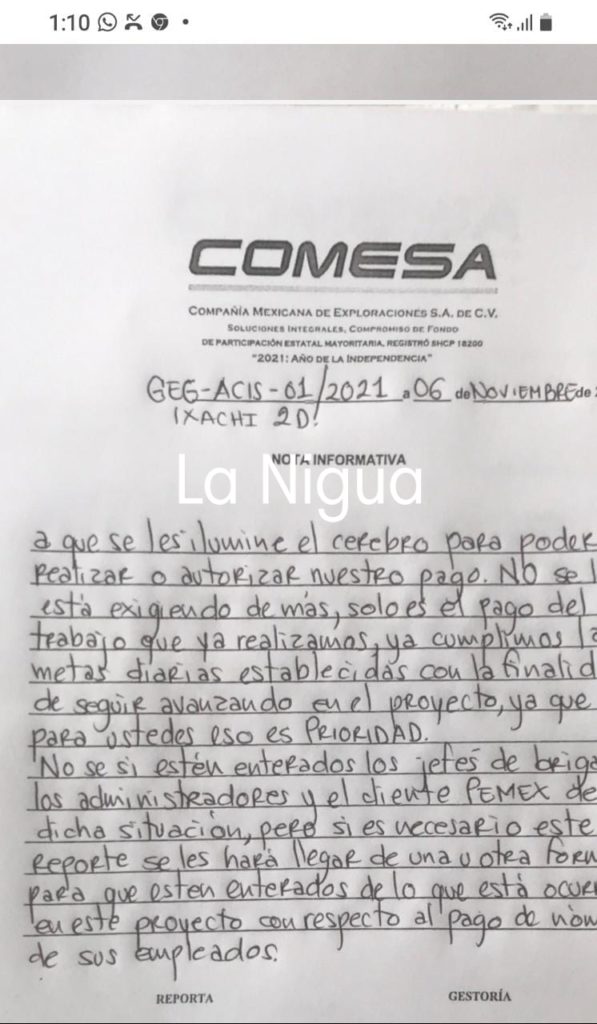 1:10
COMESA
COMPAÑÍA MEXICANA DE EXPLORACIONES S.A. DE C.V.
SOLUCIONES INTEGRALES, COMPROMISO DE FONDO
DE PARTICIPACIÓN ESTATAL MAYORITARIA, REGISTRÓ SHCP 18200
"2021: AÑO DE LA INDEPENDENCIA"
GEG-ACIS-01/2021 a 06 de NOVIEMBRE de
IXACHI 2D.
NOTA INFORMATIVA
La Nigua
a que se les ilumine el cerebro para poder
realizar o autorizar nuestro pago. NO se l
está exigiendo de más, solo es el pago del
trabajo que ya realizamos, ya cumplimos la
metas diarias establecidas con la finalid
de seguir avanzando en el proyecto, ya que
para ustedes eso es PRIORIDAD.
No se si estén enterados los jefes de briga
los administradores y el cliente PEMEX de
dicha situación, pero si es necesario este
reporte se les hará llegar de una u otra form
para que esten enterados de lo que está ocur
en este proyecto con respecto al pago de nóm
de sus empleados.
REPORTA GESTORÍA